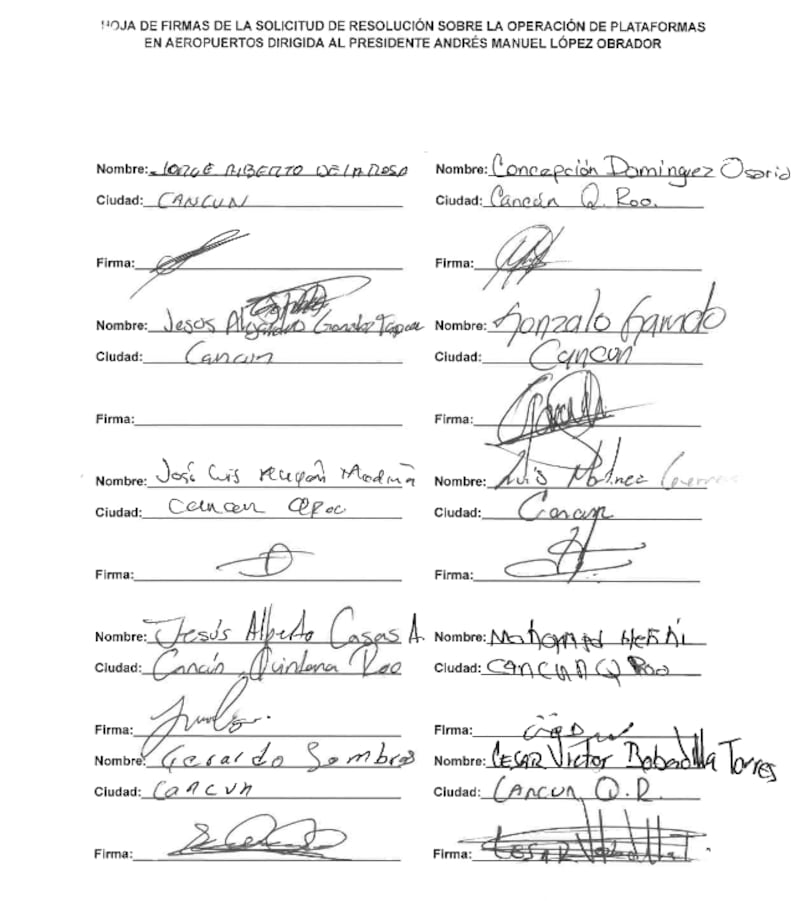 HOJA DE FIRMAS DE LA SOLICITUD DE RESOLUCIÓN SOBRE LA OPERACIÓN DE PLATAFORMAS
EN AEROPUERTOS DIRIGIDA AL PRESIDENTE ANDRÉS MANUEL LÓPEZ OBRADOR
Nombre: JORGE ALBERTO DE LA ROSA
Ciudad: CANCUN
Firma:
Nombre: Concepción Domínguez Osorio
Ciudad: Cancún Q. Roo.
Firma:
Nombre: Jesús Alejandro González
Ciudad: Cancun
Firma:
Nombre: Gonzalo Garrido
Ciudad: Cancun
Firma:
Nombre: José Luis
Ciudad: Cancun
Firma:
Nombre: Luis Martinez
Ciudad: Cancun
Firma:
Nombre: Jesús Alberto Casas A.
Ciudad: Cancún, Quintana Roo
Firma:
Nombre:
Ciudad: CANCUN Q Roo
Firma:
Nombre: Gerardo Sombra
Ciudad: Cancun
Firma:
Nombre: CESAR Victor Bobadilla Torres
Ciudad: CANCUN Q.R.
Firma: CESAR